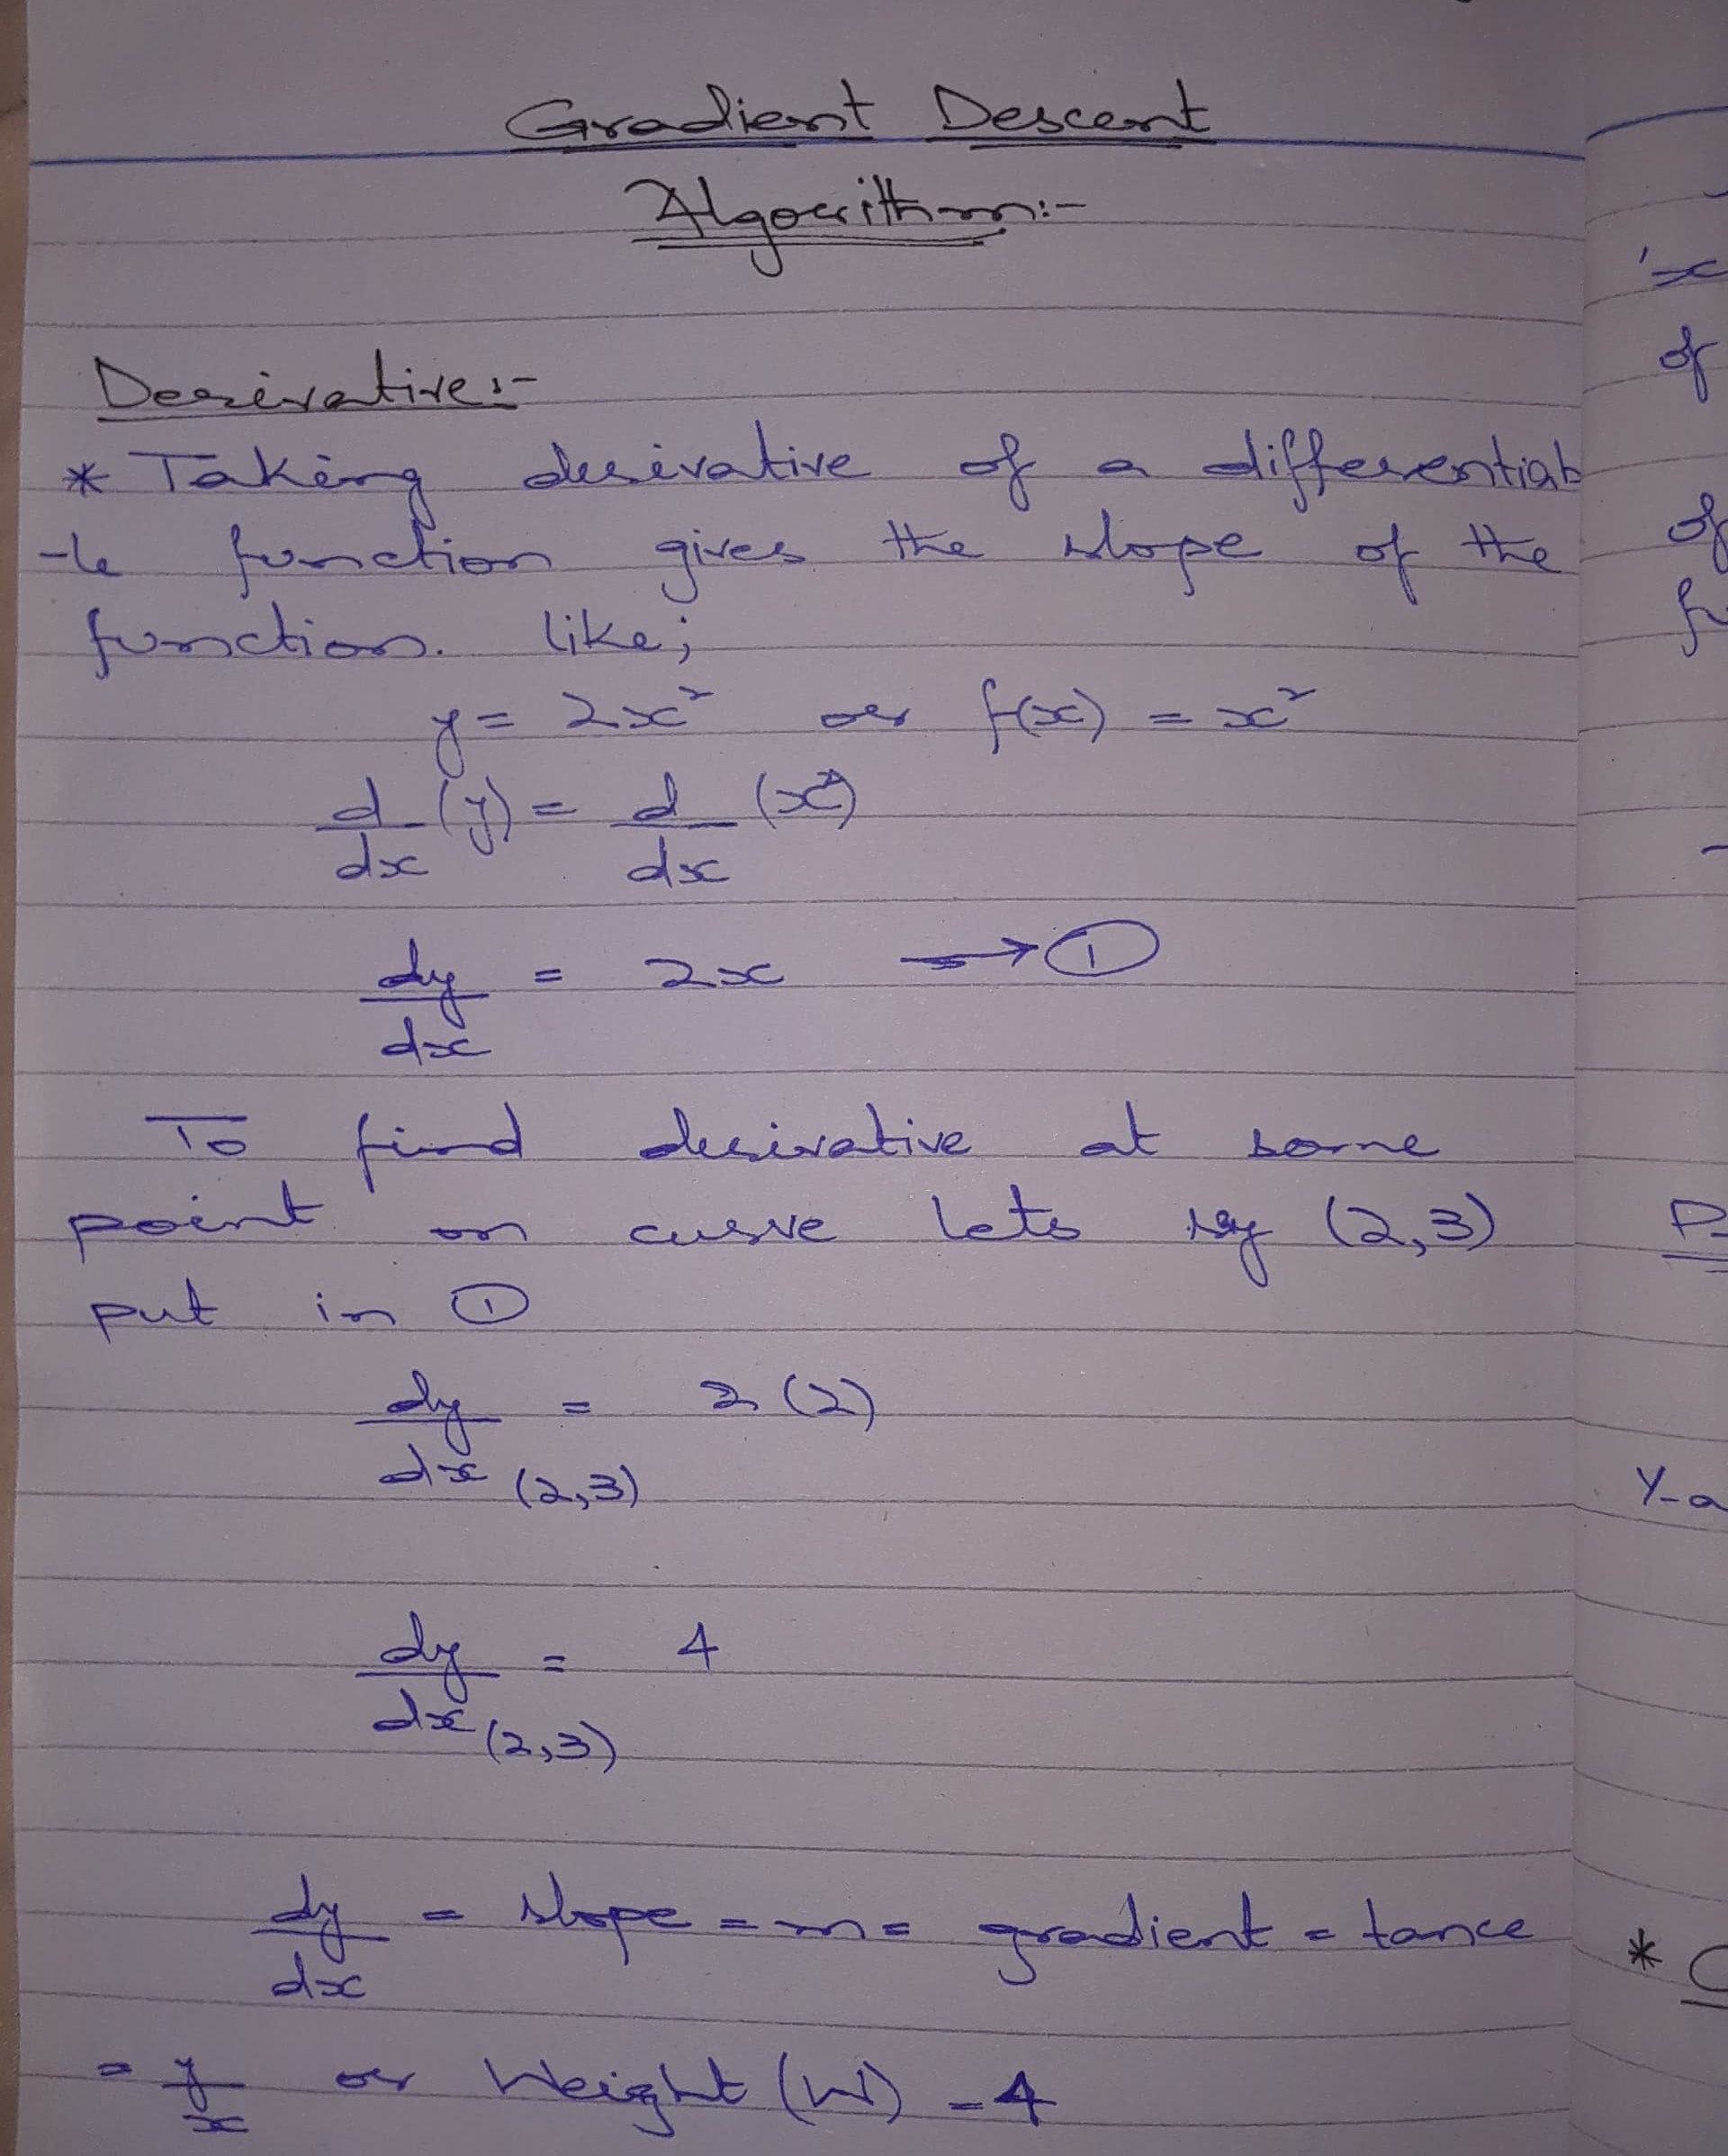 Gradient Descent
Algorithm:-
Derivative:-
* Taking derivative of a differentiab
-le function gives the slope of the
function. like;
y = 2x² or f(x) = x²
d/dx (y) = d/dx (x²)
dy/dx = 2x → ①
To find derivative at some
point on curve lets say (2,3)
put in ①
dy/dx (2,3) = 2(2)
dy/dx (2,3) = 4
dy/dx = slope = m = gradient = tance
= y/x or Weight (W) = 4
'x
of
of
Y-a
*